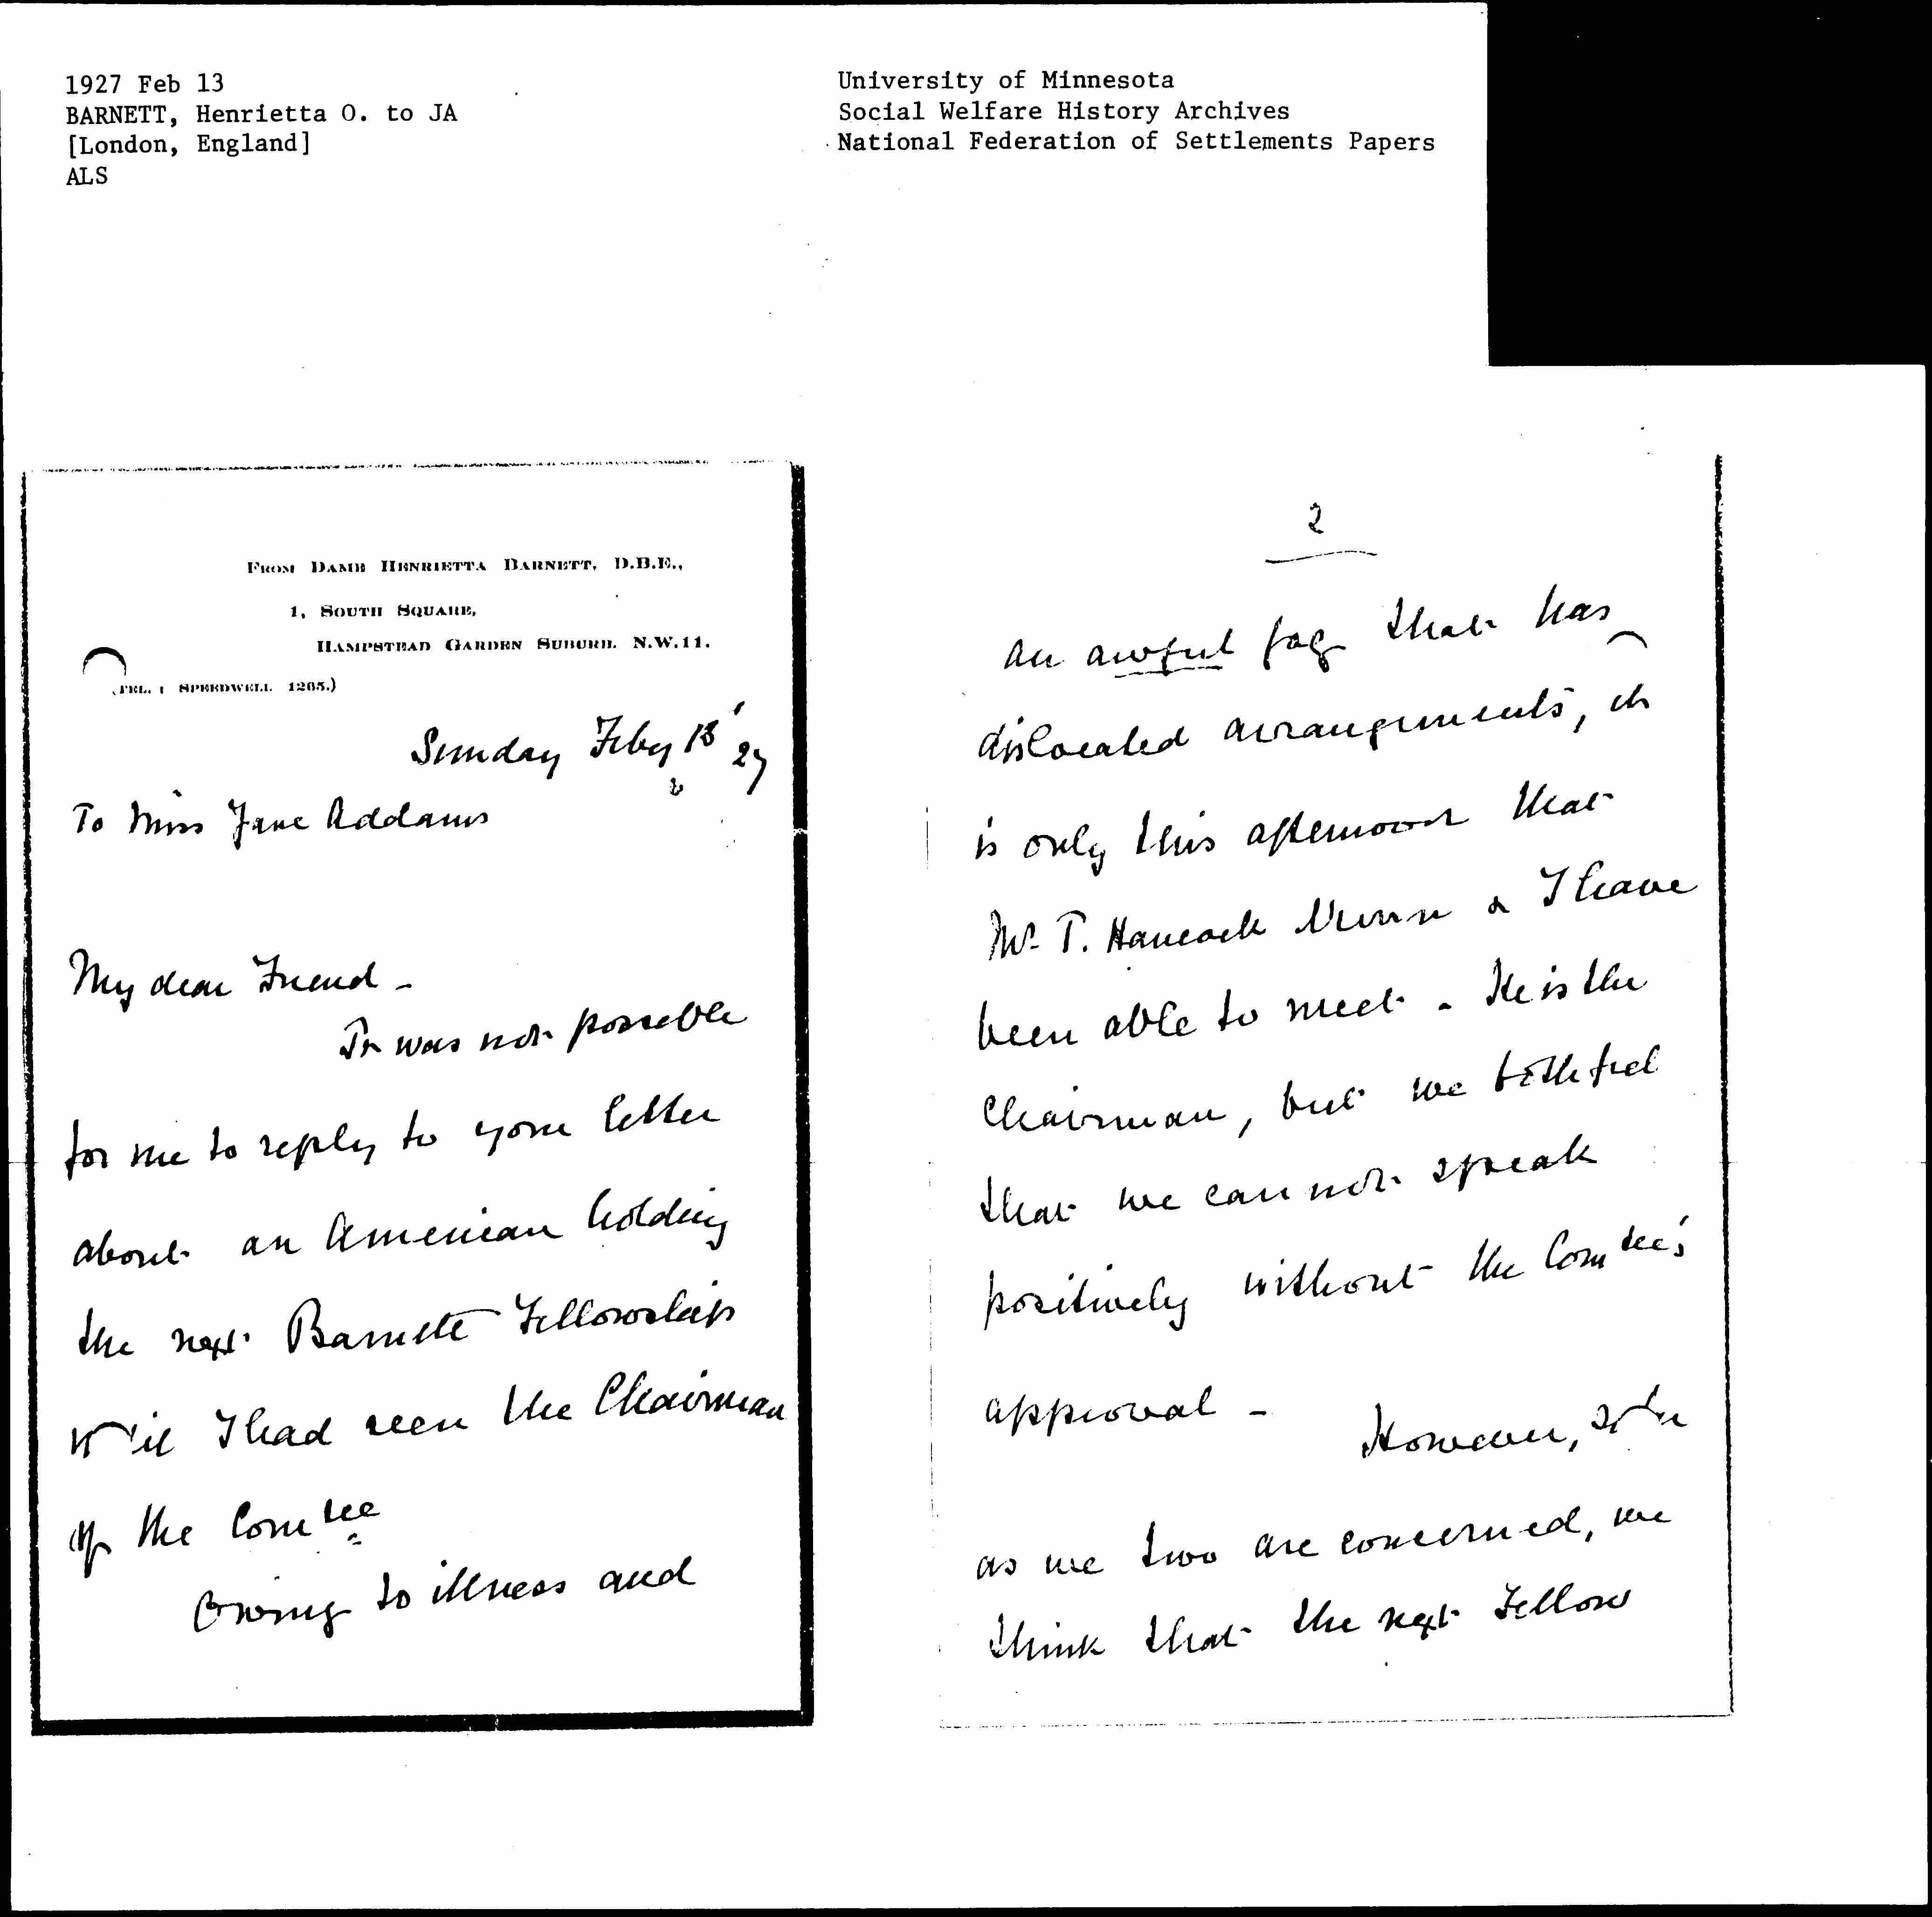 1927 Feb 13
BARNETT, Henrietta O. to JA
[London, England]
ALS
University of Minnesota
Social Welfare History Archives
National Federation of Settlements Papers
FROM DAME HENRIETTA BARNETT, D.B.E.,
1, SOUTH SQUARE,
HAMPSTEAD GARDEN SUBURB. N.W.11.
(TEL. : SPEEDWELL 1265.)
Sunday Feby 13 '27
To Miss Jane Addams
My dear Friend -
It was not possible
for me to reply to your letter
about an American holding
the next Barnett Fellowship
'til I had seen the Chairman
of the Comtee
Owing to illness and
2
an awful fog that has
dislocated arrangements, it
is only this afternoon that
Mr T. Hancock Nunn & I have
been able to meet. He is the
Chairman, but we both feel
that we can not speak
positively without the Comtee's
approval -
However,
as we two are concerned, we
think that the next Fellow